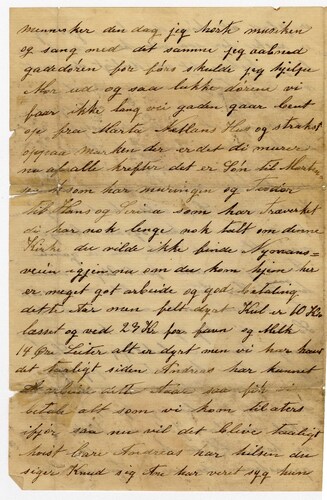 mennisker den dag jeg hørte musiken
og sang med det samme jeg aabned
gadedøren for førs skulde jeg hjelpe
Mor ud og saa lukke dørene vi
faar ikke lang vei gaden gaar bent
op fra Marta Hus og strakst
oppaa marken der er det di murer
nu af alle krefter det er Søn til Morten
som har muringen og
til Hans og Serina som har Traverket
di har nok lenge nok talt om denne
Kirke du vilde ikke kinde Nymans=
veien igjen nu om du kom hjem her
er meget got arbeide og god betaling
dette Aar men felt dyrt Kul er 60 Kr
lasset og ved 28 Kr for favn og Melk
14 Øre Liter alt er dyrt men vi har havt
det taaligt siden Andreas har kunnet
Arbeide dette Aar saa før i
betale alt som vi kom til aters
ifjor saa nu vil det blive taaligt
Care Andreas har hilsen du
siger Knud sig An har veret syg hun